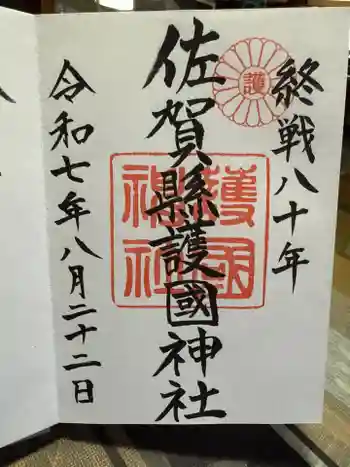 終戦八十年
佐賀縣護國神社
護
護國神社
令和七年八月二十二日